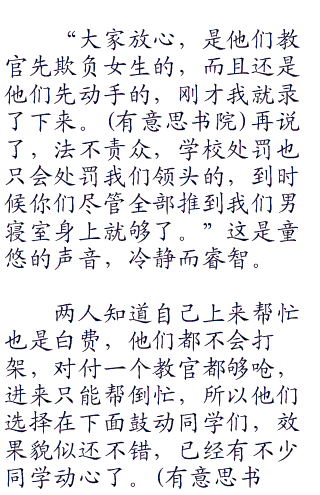 “大家放心，是他们教
官先欺负女生的，而且还是
他们先动手的，刚才我就录
了下来。(有意思书院)再说
了，法不责众，学校处罚也
只会处罚我们领头的，到时
候你们尽管全部推到我们男
寝室身上就够了。”这是童
悠的声音，冷静而睿智。
两人知道自己上来帮忙
也是白费，他们都不会打
架，对付一个教官都够呛，
进来只能帮倒忙，所以他们
选择在下面鼓动同学们，效
果貌似还不错，已经有不少
同学动心了。(有意思书